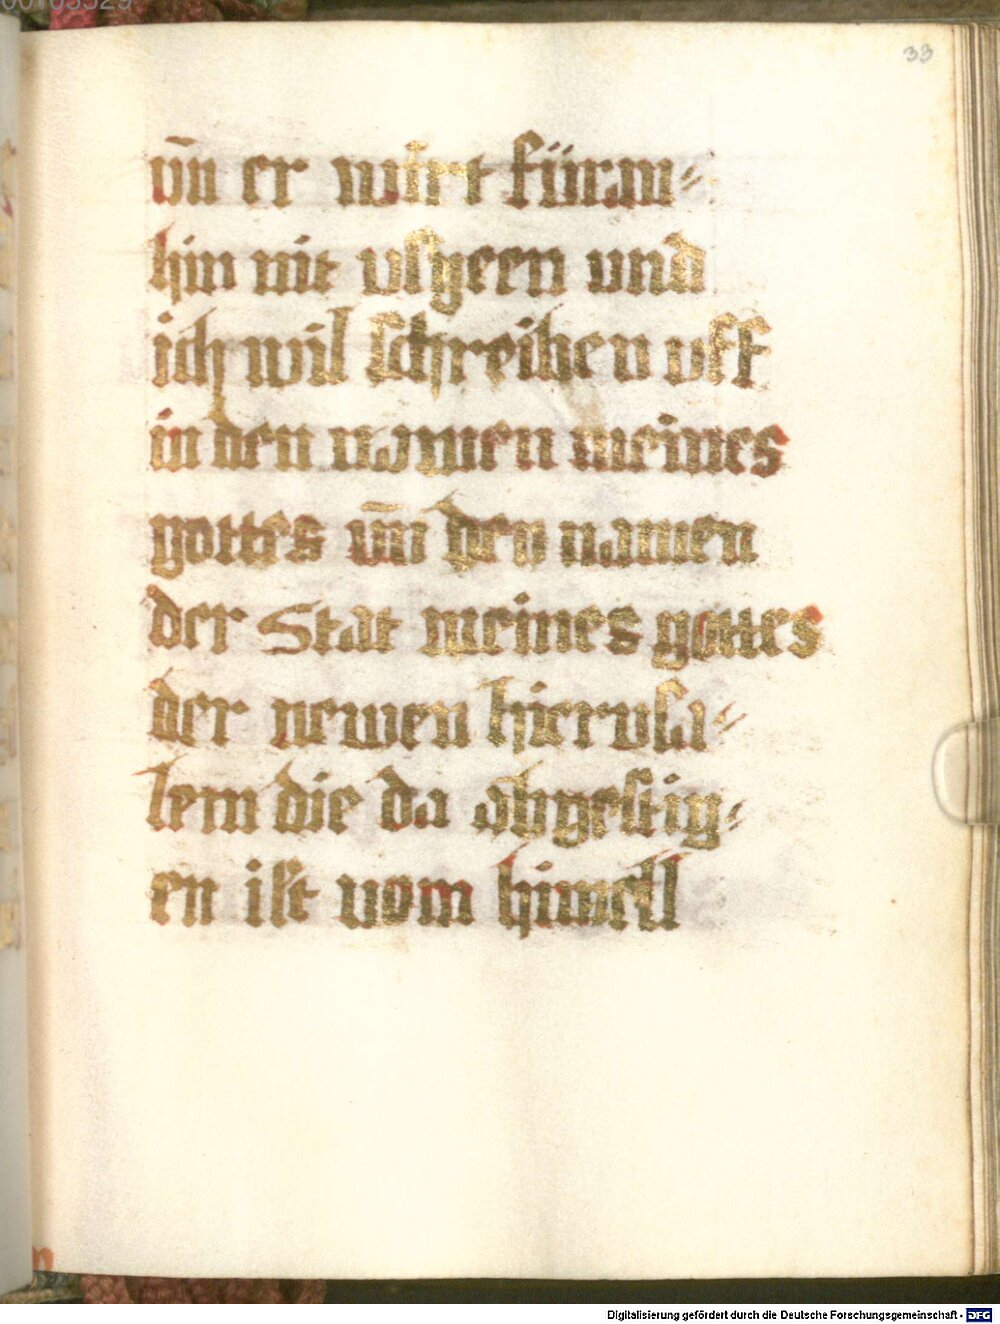 33
vn̄ er wirt füran⸗
hin nit vſgeen vnd
ich wil ſchreiben vff
in den namen meines
gottes vn̄ den namen
der Stat meines gottes
der newen hieruſa⸗
lem die da abgeſtig⸗
en iſt vom himell
Digitalisierung gefördert durch die Deutsche Forschungsgemeinschaft - DFG